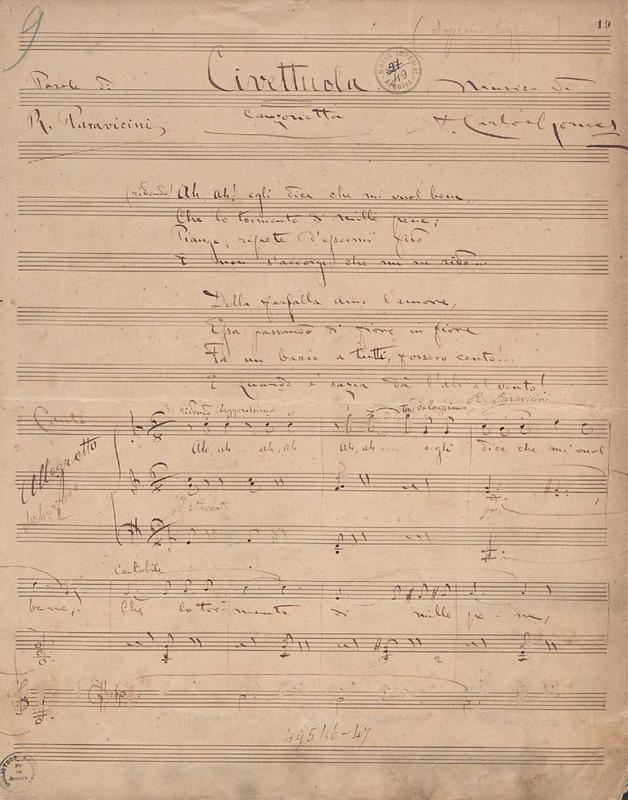 9
19
(Soprano legg
Civettuola
Parole di
Musica di
R. Paravicini,
Canzonetta
A. Carlos Gomes
(ridendo) Ah, ah! egli dice che mi vuol bene,
Che lo tormento di mille pene;
Piange, ripete d'essermi fido
E non s'accorge che me ne rido...
Della farfalla amo l'umore,
Essa passando di fiore in fiore
Fa un bacio a tutti, fossero cento!...
E quando è sazia dà l'ali al vento!
R. Paravicini
Canto
ridendo leggerissimo
dolcissimo
Ah, ah... ah, ah Ah, ah.... egli dice che mi vuol
Allegretto
scherzoso
staccato
cantabile
bene,: Che lo tor-mento di mille pe-ne,
49546-47